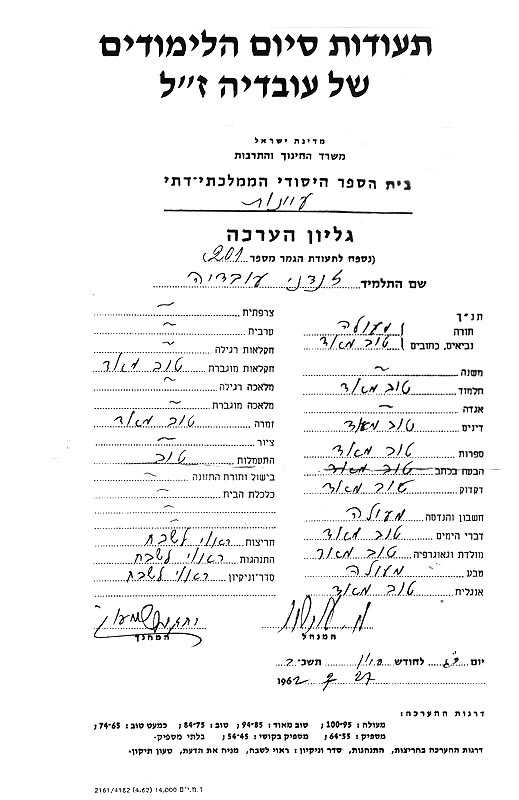 תעודות סיום הלימודים
של עובדיה ז״ל
מדינת ישראל
משרד החינוך והתרבות
בית הספר היסודי הממלכתי־דתי
עיינות
גליון הערכה
(נספח לתעודת הגמר מספר 201)
שם התלמיד לנדני עובדיה
תנ״ך
תורה מעולה
נביאים, כתובים טוב מאוד
משנה ~
תלמוד טוב מאוד
אגדה ~
דינים טוב מאוד
ספרות טוב מאוד
הבעה בכתב טוב מאוד
דקדוק טוב מאוד
חשבון והנדסה מעולה
דברי הימים טוב מאוד
מולדת וגאוגרפיה טוב מאוד
טבע מעולה
אנגלית טוב מאוד
צרפתית ~
ערבית ~
חקלאות רגילה ~
חקלאות מוגברת טוב מאוד
מלאכה רגילה ~
מלאכה מוגברת ~
זמרה טוב מאוד
ציור ~
התעמלות טוב
בישול ותורת התזונה ~
כלכלת הבית ~
~
~
חריצות ראוי לשבח
התנהגות ראוי לשבח
סדר וניקיון ראוי לשבח
המנהל
המחנך
יום כ״ג לחודש סיון תשכ״ב
1962
דרגות ההערכה:
מעולה: 95–100; טוב מאוד: 85–94; טוב: 75–84; כמעט טוב: 65–74;
מספיק: 55–64; מספיק בקושי: 45–54; בלתי מספיק.
דרגות ההערכה בחריצות, התנהגות, סדר וניקיון: ראוי לשבח, מניח את הדעת, טעון תיקון.
2161/4182 (4.62) 14,000 ד.מ.י״ם